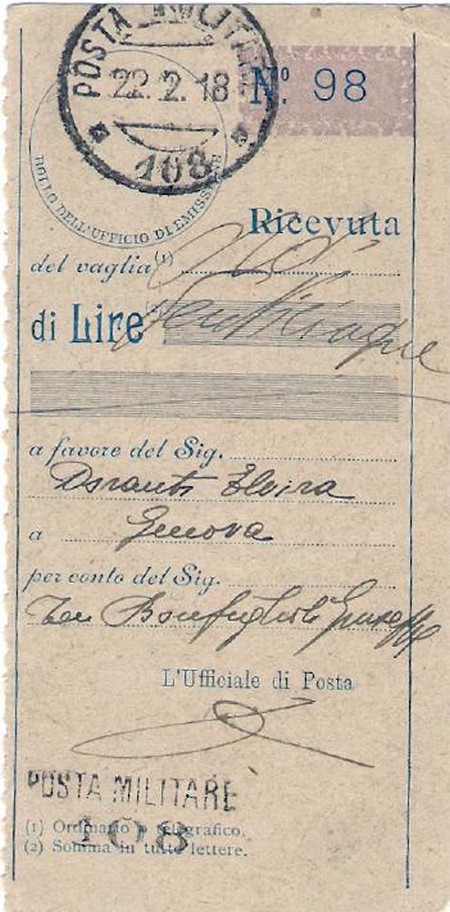 POSTA MILITARE
22.2.18
108
Nº. 98
BOLLO DELL'UFFICIO DI EMISSIONE
Ricevuta
del vaglia (1)
di Lire (2) Venticinque
a favore del Sig.
Elvira
a Genova
per conto del Sig.
Ten Bonfiglioli Giuseppe
L'Ufficiale di Posta
POSTA MILITARE
108
(1) Ordinario o telegrafico.
(2) Somma in tutte lettere.